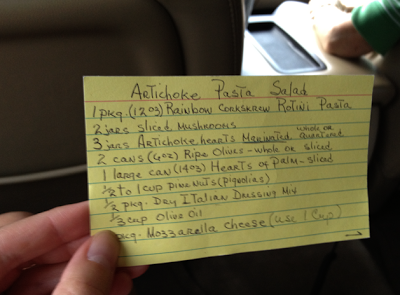 Artichoke Pasta Salad
1 pkg. (12 oz) Rainbow Corkscrew Rotini Pasta
2 jars sliced mushrooms
3 jars Artichoke hearts Marinated whole or quartered
2 cans (4oz) Ripe Olives - whole or sliced
1 large can (14oz) Hearts of Palm - sliced
1/2 to 1 cup pine nuts (pignolias)
1/2 pkg. Dry Italian Dressing Mix
1/3 cup Olive Oil
pkg. Mozzarella Cheese (use 1 cup)